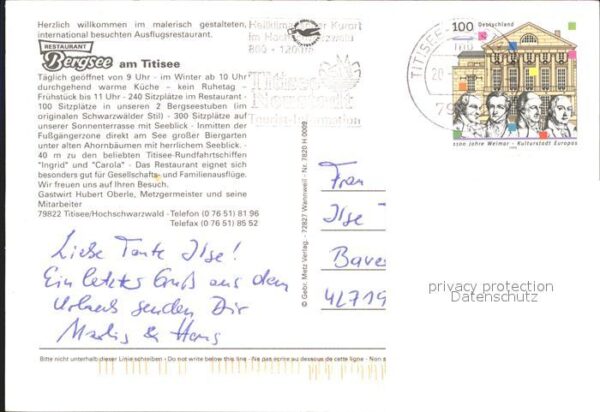 Herzlich willkommen im malerisch gestalteten,
international besuchten Ausflugsrestaurant.
RESTAURANT
Bergsee am Titisee
Täglich geöffnet von 9 Uhr - im Winter ab 10 Uhr
durchgehend warme Küche - kein Ruhetag -
Frühstück bis 11 Uhr - 240 Sitzplätze im Restaurant -
100 Sitzplätze in unseren 2 Bergseestuben (im
originalen Schwarzwälder Stil) - 300 Sitzplätze auf
unserer Sonnenterrasse mit Seeblick - Inmitten der
Fußgängerzone direkt am See großer Biergarten
unter alten Ahornbäumen mit herrlichem Seeblick. -
40 m zu den beliebten Titisee-Rundfahrtschiffen
"Ingrid" und "Carola" - Das Restaurant eignet sich
besonders gut für Gesellschafts- und Familienausflüge.
Wir freuen uns auf Ihren Besuch.
Gastwirt Hubert Oberle, Metzgermeister und seine
Mitarbeiter
79822 Titisee/Hochschwarzwald - Telefon (0 76 51) 81 96
Telefax (0 76 51) 85 52
Liebe Tante Ilse!
Ein letzter Gruß aus dem
Urlaub senden Dir
& Hans
Bitte nicht unterhalb dieser Linie schreiben · Do not write below this line · Ne pas ecrire au dessous de cette ligne · Non s
© Gebr. Metz Verlag · 72827 Wannweil · Nr. 7820 H 0009
Heilklimatischer Kurort
im Hochschwarzwald
800 - 1200 m
Titisee
Neustadt
Tourist-Information
TITISEE
20
79
100 Deutschland
1100 Jahre Weimar · Kulturstadt Europas
Frau
Ilse
42719
privacy protection
Datenschutz